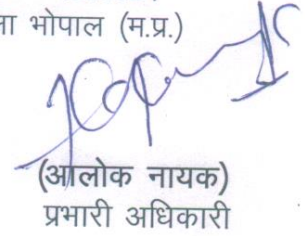 भोपाल (म.प्र.)
(आलोक नायक)
प्रभारी अधिकारी